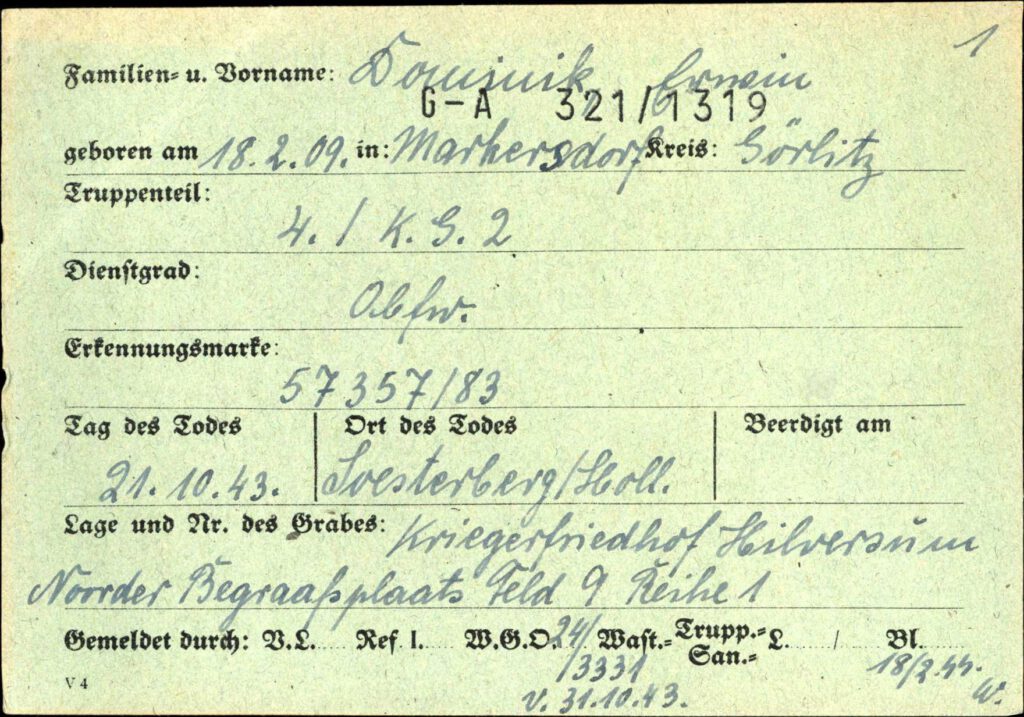 1
Familien= u. Vorname: Dominik, Erwin
G-A 321/1319
geboren am 18.2.09. in: Markersdorf Kreis: Görlitz
Truppenteil:
4. / K. G. 2
Dienstgrad:
Obfw.
Erkennungsmarke:
57357/83
Tag des Todes Ort des Todes Beerdigt am
21.10.43. Soesterberg/Holl.
Lage und Nr. des Grabes: Kriegerfriedhof Hilversum
Noorder Begraafsplaats Feld 9 Reihe 1
Gemeldet durch: V.L. Ref I. W.G.O. 24/ Wast.= Trupp.= San.= L. / Bl.
/3331 18/2.44.
V 4 v. 31.10.43. W.